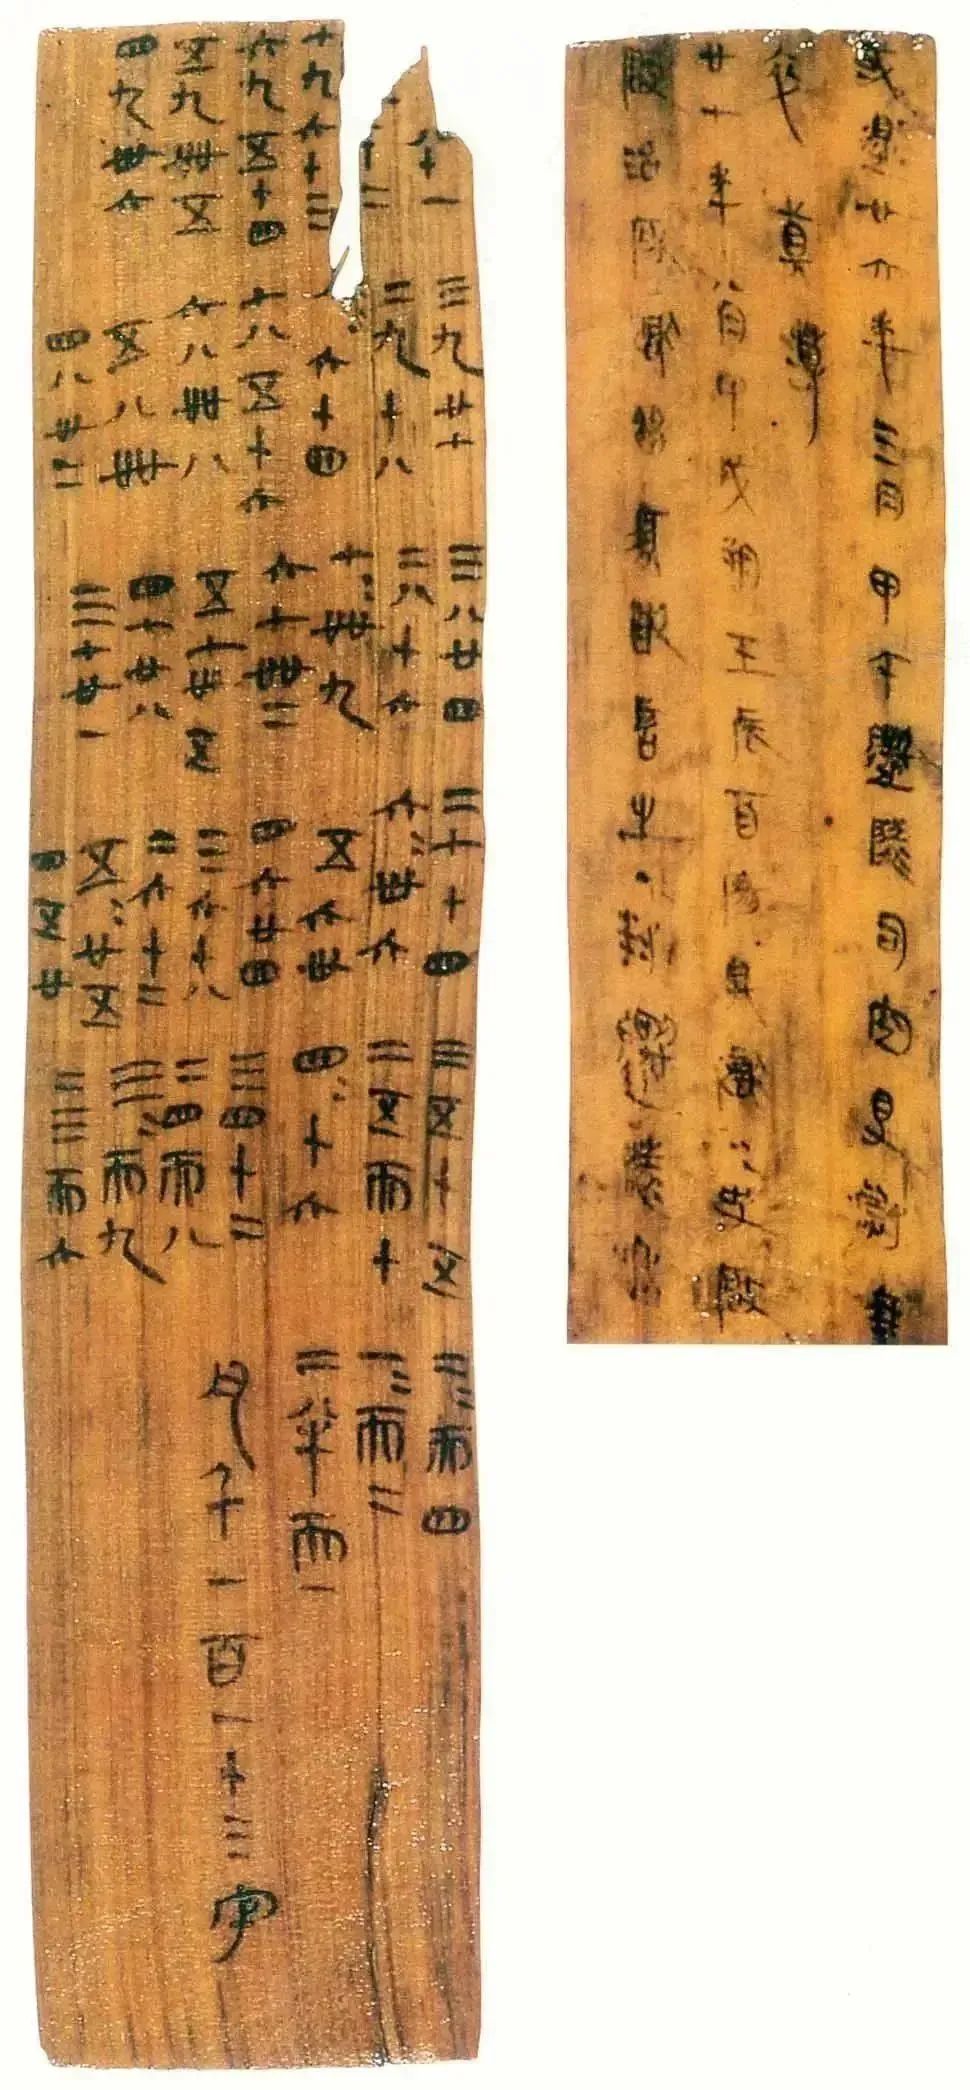 或遝廿六年三月甲午遷陵司空得尉乘
卒真薄
廿七年八月甲戌朔壬辰酉陽具獄=史啟
啟治所獄留須敢言之·封遷陵丞
八十一
十二
七九六十三
六九五十四
五九卌五
四九卅六
三九廿七
二九十八
六十四
七八五十六
六八卌八
五八卌
四八卅二
三八廿四
二八十六
七=卌九
六七卌二
五七卅五
四七廿八
三七廿一
二七十四
六=卅六
五六卅
四六廿四
三六十八
二六十二
五=廿五
四五廿
三五十五
二五而十
四=十六
三四十二
二四而八
三=而九
二三而六
二=而四
一=而二
二半而一
凡千一百一十三字